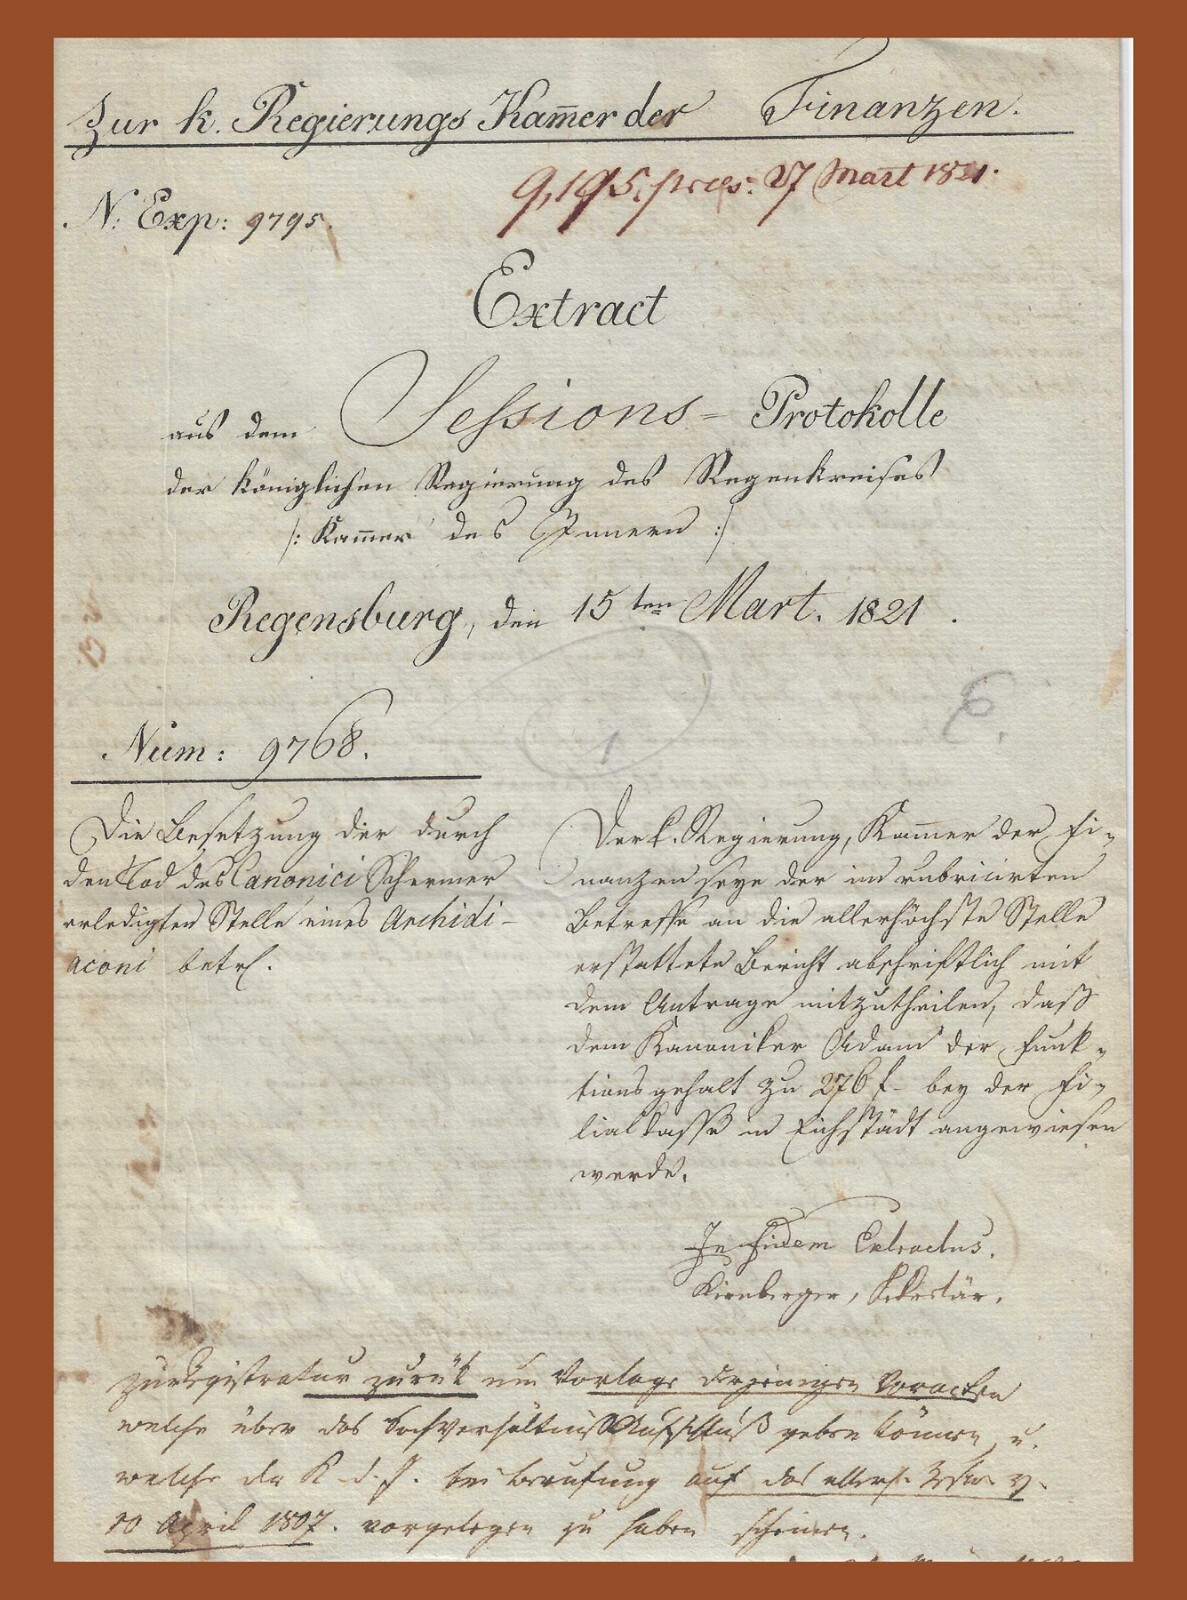 Zur k. Regierungs Kam̅er der Finanzen.
9,195. præs: 27 Mart 1821.
N: Exp: 9795.
Extract
aus dem Sessions- Protokolle
der königlichen Regierung des Regenkreises
/: Kam̅er des Innern :/
Regensburg, den 15ten Mart. 1821.
E.
1
Num: 9768.
Die Besetzung der durch
den Tod des Canonici Schermer
erledigten Stelle eines Archidi-
aconi betrf.
Der k. Regierung, Kam̅er der Fi-
nanzen seye der im rubricirten
Betreffe an die allerhöchste Stelle
erstattete Bericht abschriftlich mit
dem Antrage mitzutheilen, daß
dem Kanoniker Adam der Funk-
tionsgehalt zu 276 f. bey der Fi-
lialkasse in Eichstädt angewiesen
werde.
In fidem Extractus.
Kirnberger, Sekretär.
zur Registratur zurük um Vorlage derjenigen Voracten
welche über das Sachverhältniß Aufschluß geben können u.
welche der K. d. J. bei Berufung auf das allerh. v.
10 April 1807. vorgelegen zu haben scheinen.